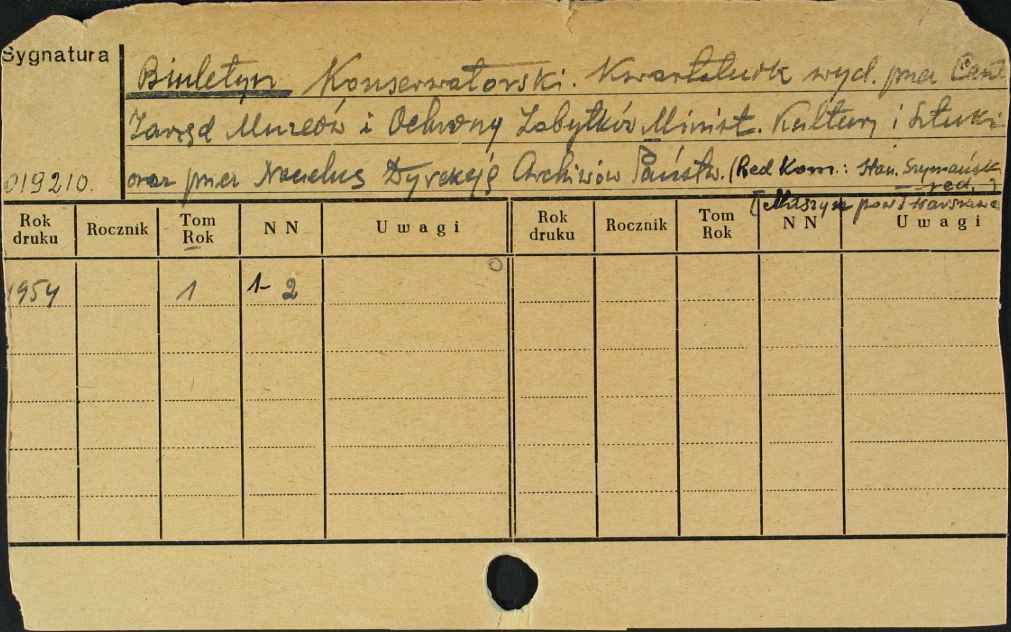 Sygnatura
Biuletyn Konserwatorski. Kwartalnik wyd. przez Centr.
Zarząd Muzeów i Ochrony Zabytków Minist. Kultury i Sztuki
019210. oraz przez Naczelną Dyrekcję Archiwów Państw. (Red Kom.: Stan. Szymański
red.)
[Maszyn. pow.] Warszawa
Rok druku Rocznik Tom Rok N N Uwagi Rok druku Rocznik Tom Rok N N Uwagi
1954 1 1-2